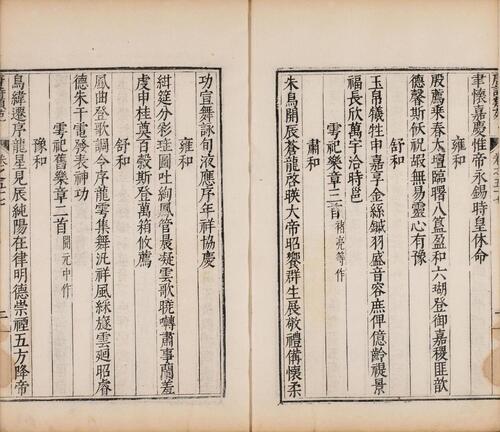 聿懷嘉慶惟帝永錫時皇休命
雍和
殷薦乘春太壇臨曙八簋盈和六瑚登御嘉稷匪歆
德馨斯飫祝嘏無易靈心有豫
舒和
玉帛犧牲申嘉享金絲鏚羽盛音容庶俾億齡禔景
福長欣萬宇洽時邕
雩祀樂章三首 褚亮等作
肅和
朱鳥開辰蒼龍啓映大帝昭饗群生展敬禮僃懷柔
功宣舞詠旬液應序年祥協慶
雍和
紺筵分彩瑤圖吐絢鳳管晨凝雲歌曉囀肅事蘭羞
虔申桂奠百穀斯登萬箱攸薦
舒和
鳳曲登歌調令序龍雩集舞汎祥風綵旞雲廻昭睿
德朱干電發表神功
雩祀舊樂章二首 開元中作
豫和
鳥緯遷序龍星見辰純陽在律明德崇禋五方降帝